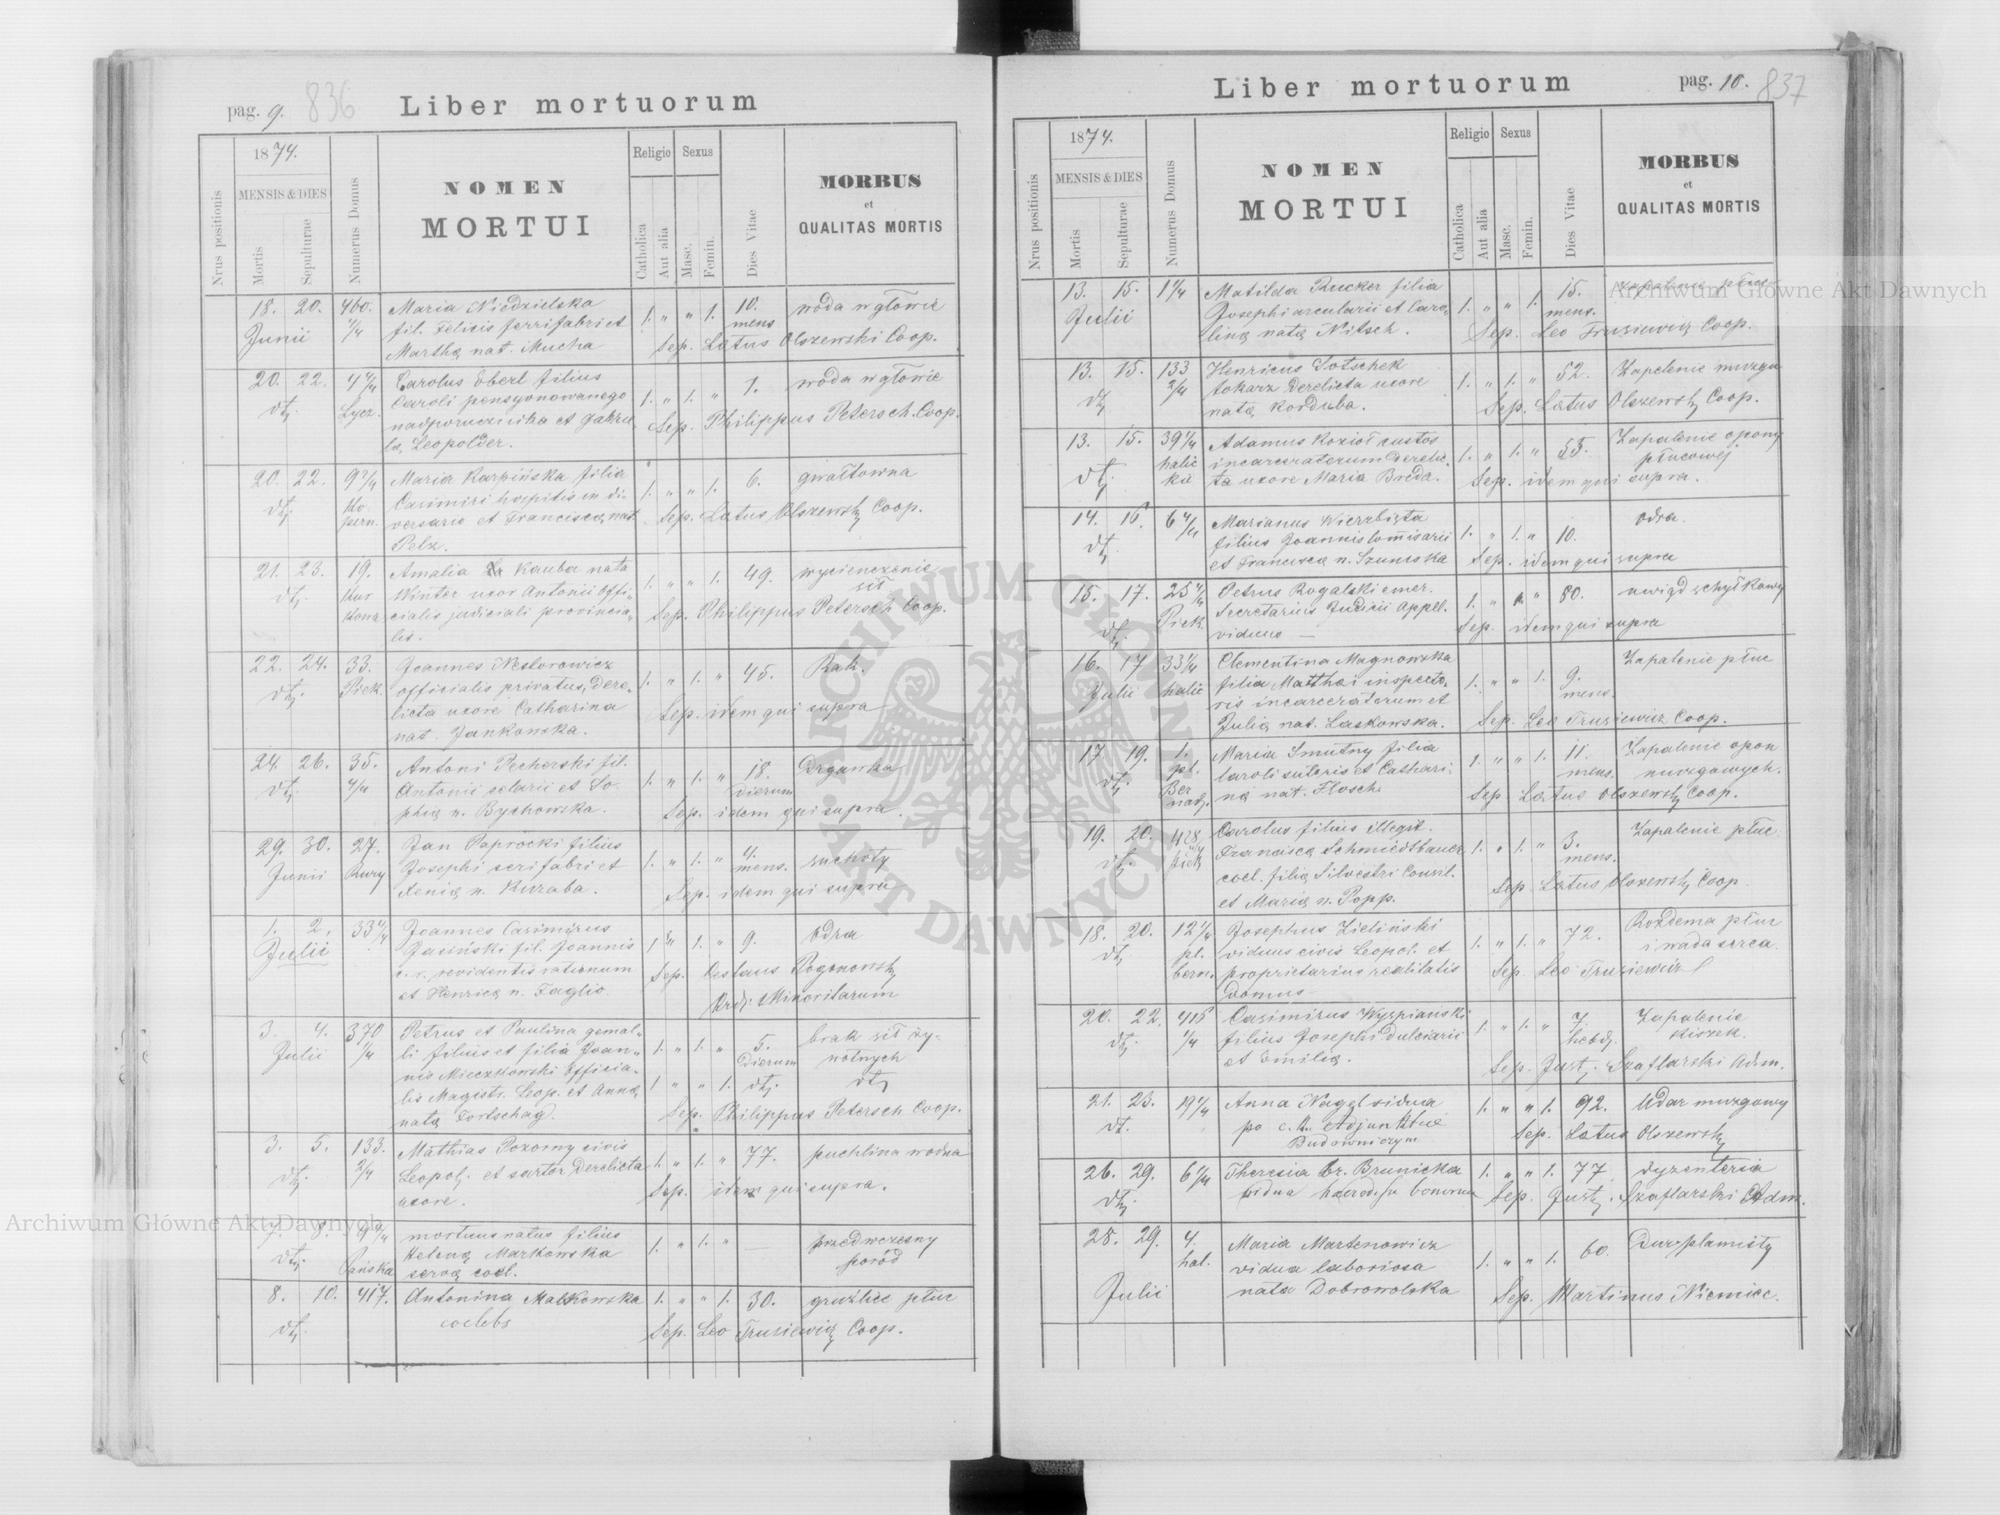 pag. 9. 836
Liber mortuorum
Nrus positionis
1874.
MENSIS & DIES
Mortis
Sepulturae
Numerus Domus
NOMEN
MORTUI
Religio
Catholica
Aut alia
Sexus
Masc.
Femin.
Dies Vitae
MORBUS
et
QUALITAS MORTIS
18. 20. 460. Maria Niedzielska 1. " " 1. 10. woda w głowie
Junii 4/4 fil. Felicis ferrifabri et mens
Martha nat. Mucha Sep. Latus Olszewski Coop.
20. 22. Carolus Eberl filius 1. " 1. " 1. woda w głowie
Lycz. Caroli pensyonowanego
nadporucznika et Gabrie Sep. Philippus Petersch. Coop.
la Leopolder.
20. 22. Maria Karpińska filia 1. " " 1. 6. gwałtowna
Casimiri hospitis in di
versario et Francisca nat. Sep. Latus Olszewsk Coop.
Pelz.
21. 23. 19. Amalia Kauba nata 1. " " 1. 49. wycienczenie
Winter uxor Antonii offi- sił
cialis judiciali provincia- Sep. Philippus Petersch Coop.
lis.
22. 24. 33. Joannes Nestorowicz 1. " 1. " 45. Rak.
Piek. officialis privatus, dere-
licta uxore Catharina Sep. idem qui supra
nat. Jankowska.
24. 26. 35. Antoni Pecherski fil. 1. " 1. " 18. Drgawka
4/4 Antonii selarii et So dierum
phia n. Bychowska. Sep. idem qui supra.
29. 30. 27. Jan Paprocki filius 1. " 1. " 4. suchoty
Junii Rury Josephi serifabri et mens.
Xenia n. Kuraba. Sep. idem qui supra
1. 2. 33 4/4 Joannes Casimirus 1. " 1. " 9. odra
Julii Jasiński fil. Joannis
revidentis rationum Sep. Pogonowsk
et Henrica n. Faglio Ord. Minoritarum
3. 4. 370 Petrus et Paulina gemel- 1. " 1. " 5. brak sił ży-
Julii 1/4 li filius et filia Joan- Dierum wotnych
nis Mieczkowski officia- 1. " " 1. dtj. dtj
lis Magistr. Leop. et Anna Sep. Philippus Petersch Coop.
nata Fortschag.
3. 5. 133. Mathias Pozorny civis 1. " 1. " 77. puchlina wodna
dtj. 2/4 Leopol. et sartor, derelicta
uxore. Sep. idem qui supra.
7. 8. mortuus natus filius 1. " 1. " — przedwczesny
dtj. Pańska Helena Markowska poród
serva coel.
8. 10. 417. Antonina Malkowska 1. " " 1. 30. gruźlice płuc
dtj. coelebs Sep. Leo Trusiewicz Coop.
Liber mortuorum
pag. 10. 837
Nrus positionis
1874.
MENSIS & DIES
Mortis
Sepulturae
Numerus Domus
NOMEN
MORTUI
Religio
Catholica
Aut alia
Sexus
Masc.
Femin.
Dies Vitae
MORBUS
et
QUALITAS MORTIS
13. 15. Matilda Rucker filia 1. " " 1. 15. Zapalenie płuc
Julii Josephi arcularii et Caro- mens.
lina nata Nitsch. Sep. Leo Trusiewicz Coop.
13. 15. 133 Henricus Sotschek 1. " 1. " 52. Zapalenie muzgu
dtj 2/4 tokarz derelicta uxore
nata Korduba. Sep. Latus Olszewsk Coop.
13. 15. 39 4/4 Adamus Kozioł custos 1. " 1. " 53. Zapalenie opony
dtj. halic incarceratorum derelic- płucowej
ka ta uxore Maria Breda. Sep. idem qui supra.
14. 16. 6 4/4 Marianus Wierzbięta 1. " 1. " 10. odra.
dtj. filius Joannis comisarii
et Francisca n. Szumska Sep. idem qui supra
15. 17. 25 4/4 Petrus Rogalski emer. 1. " 1. " 80. uwiąd schyłkowy
dtj. Piek. Secretarius Judicii Appel.
viduus — Sep. idem qui supra
16. 17 33 4/4 Clementina Magnowska 1. " " 1. 9. Zapalenie płuc
Julii halic filia Matthæi inspecto- mens.
ris incarceratorum et
Julia nat. Laskowska. Sep. Leo Trusiewicz Coop.
17 19. 1. Maria Smutny filia 1. " " 1. 11. Zapalenie opon
dtj. pl. Caroli sutoris et Cathari- mens. muzgowych.
Ber na nat. Flosch. Sep. Latus Olszewsk Coop.
nad.
19. 20. 428 Carolus filius illegit. 1. " 1. " 3. Zapalenie płuc
dtj. Piek Francisca Schmiedtbauer mens.
coel. filia Silvestri Consil. Sep. Latus Olszewsk Coop
et Maria n. Popp.
18. 20. 12 4/4 Josephus Zieliński 1. " 1. " 72. Rozdema płuc
dtj. pl. viduus civis Leopol. et i wada serca
bern. proprietarius realitatis Sep. Leo Trusiewicz
domus —
20. 22. 415 Casimirus Wyspiański 1. " 1. " 7. Zapalenie
dtj. 1/4 filius Josephi dulciarii hebd. kiszek.
et Emilia. Sep. Just. Szaflarski Adm.
21. 23. 19 4/4 Anna Nagel vidua 1. " " 1. 92. Udar muzgowy
dt. po c. k. Adjunktcie Sep. Latus Olszewsk
Budowniczym
26. 29. 6 4/4 Theresia br. Brunicka 1. " " 1. 77 dyzenteria
dtj. vidua bonorum Sep. Just. Szaflarski Adm.
28. 29. 4. Maria Martenowicz 1. " " 1. 60. Dur plamisty
hal. vidua laboriosa
Julii nata Dobrowolska Sep. Martinus Niemiec.
Archiwum Główne Akt Dawnych
Archiwum Główne Akt Dawnych
ARCHIWUM GŁÓWNE AKT DAWNYCH